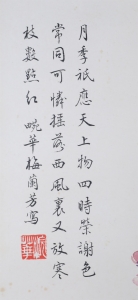 月季祇應天上物四時榮謝色
常同可憐搖落西風裏又放寒
枝數點紅 畹華梅蘭芳寫